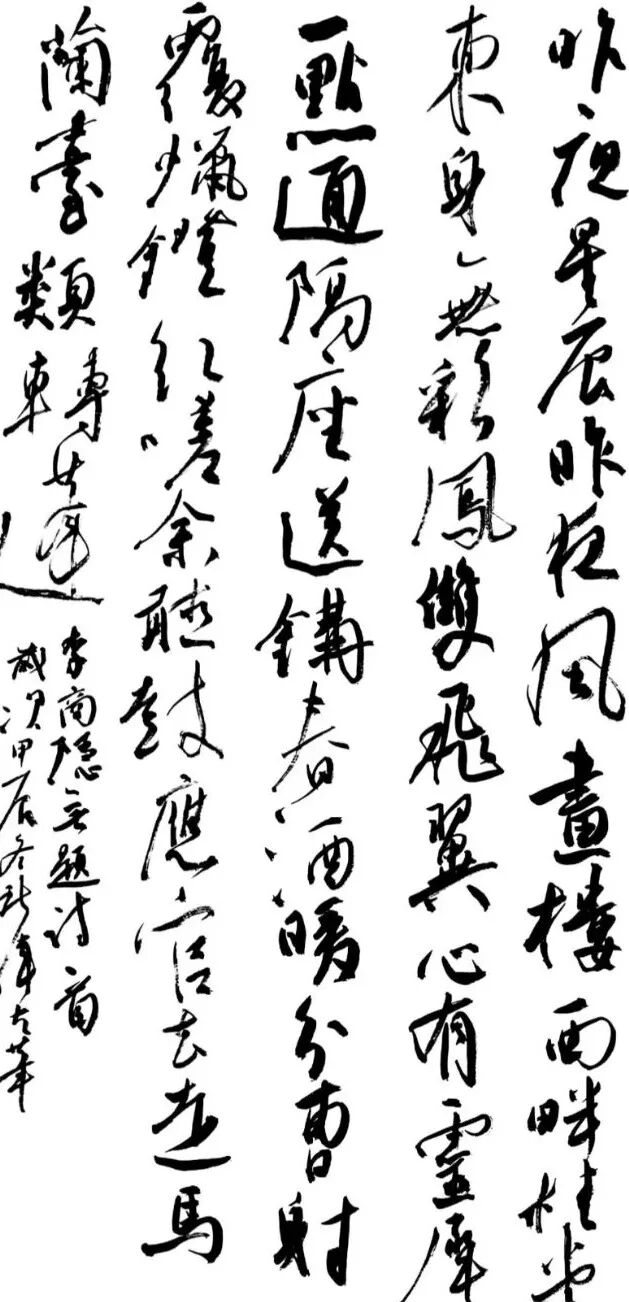 昨夜星辰昨夜風畫樓西畔桂堂
東身無彩鳳雙飛翼心有靈犀
一點通隔座送鉤春酒暖分曹射
覆蠟鐙紅嗟余聽鼓應官去走馬
蘭臺類轉蓬
李商隱無題詩一首
歲次甲辰冬左筆